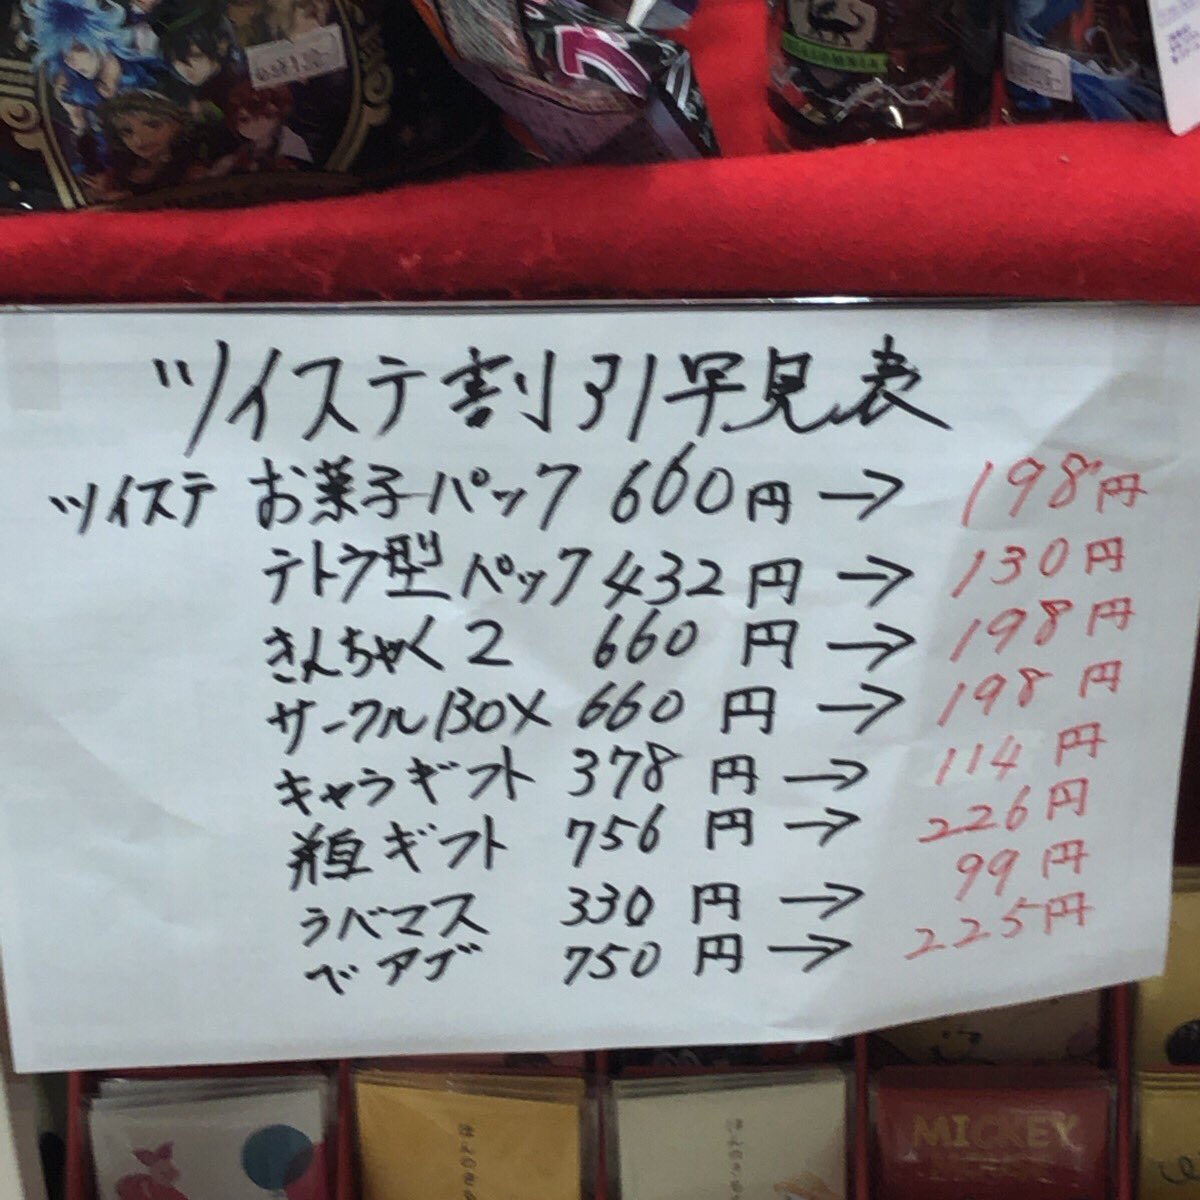 ツイステ割引早見表
ツイステ お菓子パック 660円 → 198円
テトラ型パック 432円 → 130円
きんちゃく2 660円 → 198円
サークルBOX 660円 → 198円
キャラギフト 378円 → 114円
瓶ギフト 756円 → 226円
ラバマス 330円 → 99円
ベアブ 750円 → 225円
ほんのきも
ほんのきも
MICKEY
MOUSE